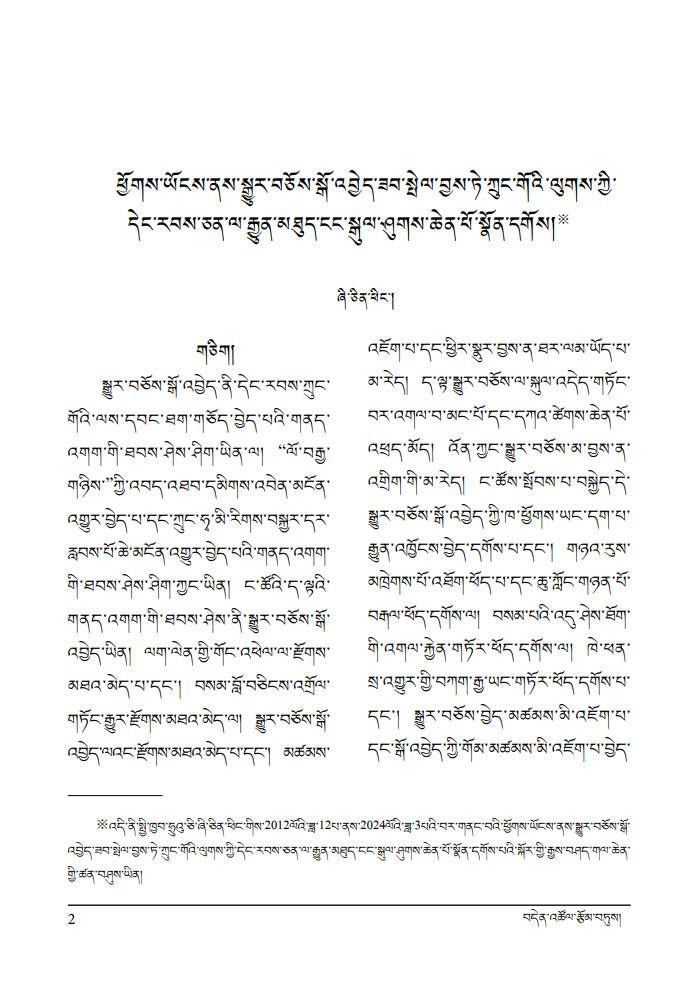 ཕྱོགས་ཡོངས་ནས་སྒྱུར་བཅོས་སྒོ་འབྱེད་ཟབ་སྤེལ་བྱས་ཏེ་ཀྲུང་གོའི་ལུགས་ཀྱི་
དེང་རབས་ཅན་ལ་རྒྱུན་མཐུད་ངང་སྐུལ་ཤུགས་ཆེན་པོ་སྣོན་དགོས།※
ཞི་ཅིན་ཕིང་།
གཅིག།
སྒྱུར་བཅོས་སྒོ་འབྱེད་ནི་དེང་རབས་ཀྲུང་
གོའི་ལས་དབང་ཐག་གཅོད་བྱེད་པའི་གནད་
འགག་གི་ཐབས་ཤེས་ཤིག་ཡིན་ལ། “ལོ་བརྒྱ་
གཉིས་”ཀྱི་འབད་འཐབ་དམིགས་འབེན་མངོན་
འགྱུར་བྱེད་པ་དང་ཀྲུང་ཧྭ་མི་རིགས་བསྐྱར་དར་
རླབས་པོ་ཆེ་མངོན་འགྱུར་བྱེད་པའི་གནད་འགག་
གི་ཐབས་ཤེས་ཤིག་ཀྱང་ཡིན། ང་ཚོའི་ད་ལྟའི་
གནད་འགག་གི་ཐབས་ཤེས་ནི་སྒྱུར་བཅོས་སྒོ་
འབྱེད་ཡིན། ལག་ལེན་གྱི་གོང་འཕེལ་ལ་རྫོགས་
མཐའ་མེད་པ་དང་། བསམ་བློ་བཅིངས་འགྲོལ་
གཏོང་རྒྱུར་རྫོགས་མཐའ་མེད་ལ། སྒྱུར་བཅོས་སྒོ་
འབྱེད་ལའང་རྫོགས་མཐའ་མེད་པ་དང་། མཚམས་
འཇོག་པ་དང་ཕྱིར་སྣུར་བྱས་ན་ཐར་ལམ་ཡོད་པ་
མ་རེད། ད་ལྟ་སྒྱུར་བཅོས་ལ་སྐུལ་འདེད་གཏོང་
བར་འགལ་བ་མང་པོ་དང་དཀའ་ཚེགས་ཆེན་པོ་
འཕྲད་མོད། འོན་ཀྱང་སྒྱུར་བཅོས་མ་བྱས་ན་
འགྲིག་གི་མ་རེད། ང་ཚོས་སྤོབས་པ་བསྐྱེད་དེ་
སྒྱུར་བཅོས་སྒོ་འབྱེད་ཀྱི་ཁ་ཕྱོགས་ཡང་དག་པ་
རྒྱུན་འཁྱོངས་བྱེད་དགོས་པ་དང་། གཉའ་རུས་
མཁྲེགས་པོ་འཐོག་ཕོད་པ་དང་ཆུ་ཀློང་གཉན་པོ་
བརྒལ་ཕོད་དགོས་ལ། བསམ་པའི་འདུ་ཤེས་ཐོག་
གི་འགལ་རྐྱེན་གཏོར་ཕོད་དགོས་ལ། ཁེ་ཕན་
སྲ་འགྱུར་གྱི་བཀག་རྒྱ་ཡང་གཏོར་ཕོད་དགོས་པ་
དང་། སྒྱུར་བཅོས་བྱེད་མཚམས་མི་འཇོག་པ་
དང་སྒོ་འབྱེད་ཀྱི་གོམ་མཚམས་མི་འཇོག་པ་བྱེད་
※འདི་ནི་སྤྱི་ཁྱབ་ཧྲུའུ་ཅི་ཞི་ཅིན་ཕིང་གིས་2012ལོའི་ཟླ་12པ་ནས་2024ལོའི་ཟླ་3པའི་བར་གནང་བའི་ཕྱོགས་ཡོངས་ནས་སྒྱུར་བཅོས་སྒོ་
འབྱེད་ཟབ་སྤེལ་བྱས་ཏེ་ཀྲུང་གོའི་ལུགས་ཀྱི་དེང་རབས་ཅན་ལ་རྒྱུན་མཐུད་ངང་སྐུལ་ཤུགས་ཆེན་པོ་སྣོན་དགོས་པའི་སྐོར་གྱི་རྒྱས་བཤད་གལ་ཆེན་
གྱི་ཚན་བཤུས་ཡིན།
2
བདེན་འཚོལ་རྩོམ་བཏུས།